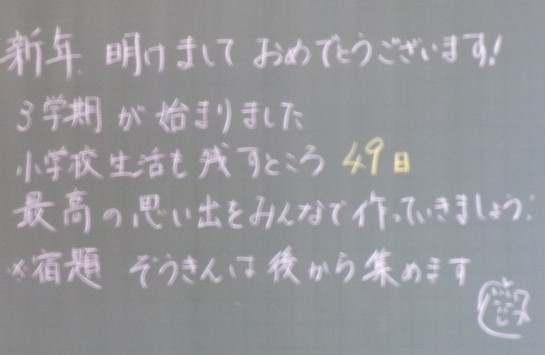 新年 明けまして おめでとうございます!
3学期が始まりました
小学校生活も残すところ 49日
最高の思い出をみんなで作っていきましょう!
※宿題 ぞうきんは後から集めます